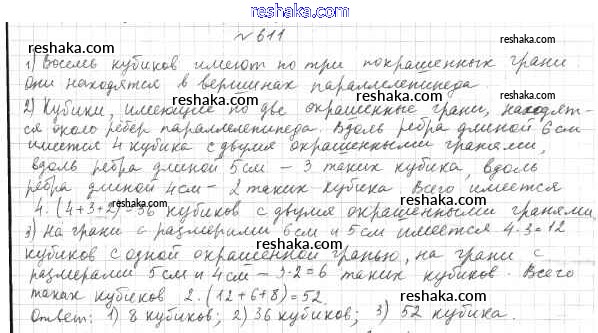 reshaka.com
№ 611
reshaka.com
1) Восемь кубиков имеют по три покрашенных грани.
Они находятся в вершинах параллелепипеда.
reshaka.com
2) Кубики, имеющие по две окрашенные грани, находят-
ся около рёбер параллелепипеда. Вдоль ребра длиной 6 см
имеется 4 кубика с двумя окрашенными гранями,
reshaka.com
вдоль ребра длиной 5 см – 3 таких кубика, вдоль
ребра длиной 4 см – 2 таких кубика. Всего имеется
reshaka.com
4·(4+3+2)=36 кубиков с двумя окрашенными гранями.
3) На грани с размерами 6 см и 5 см имеется 4·3=12
кубиков с одной окрашенной гранью, на грани с
reshaka.com
размерами 5 см и 4 см – 3·2=6 таких кубиков. Всего
таких кубиков 2·(12+6+8)=52.
reshaka.com
Ответ: 1) 8 кубиков; 2) 36 кубиков; 3) 52 кубика.
reshaka.com